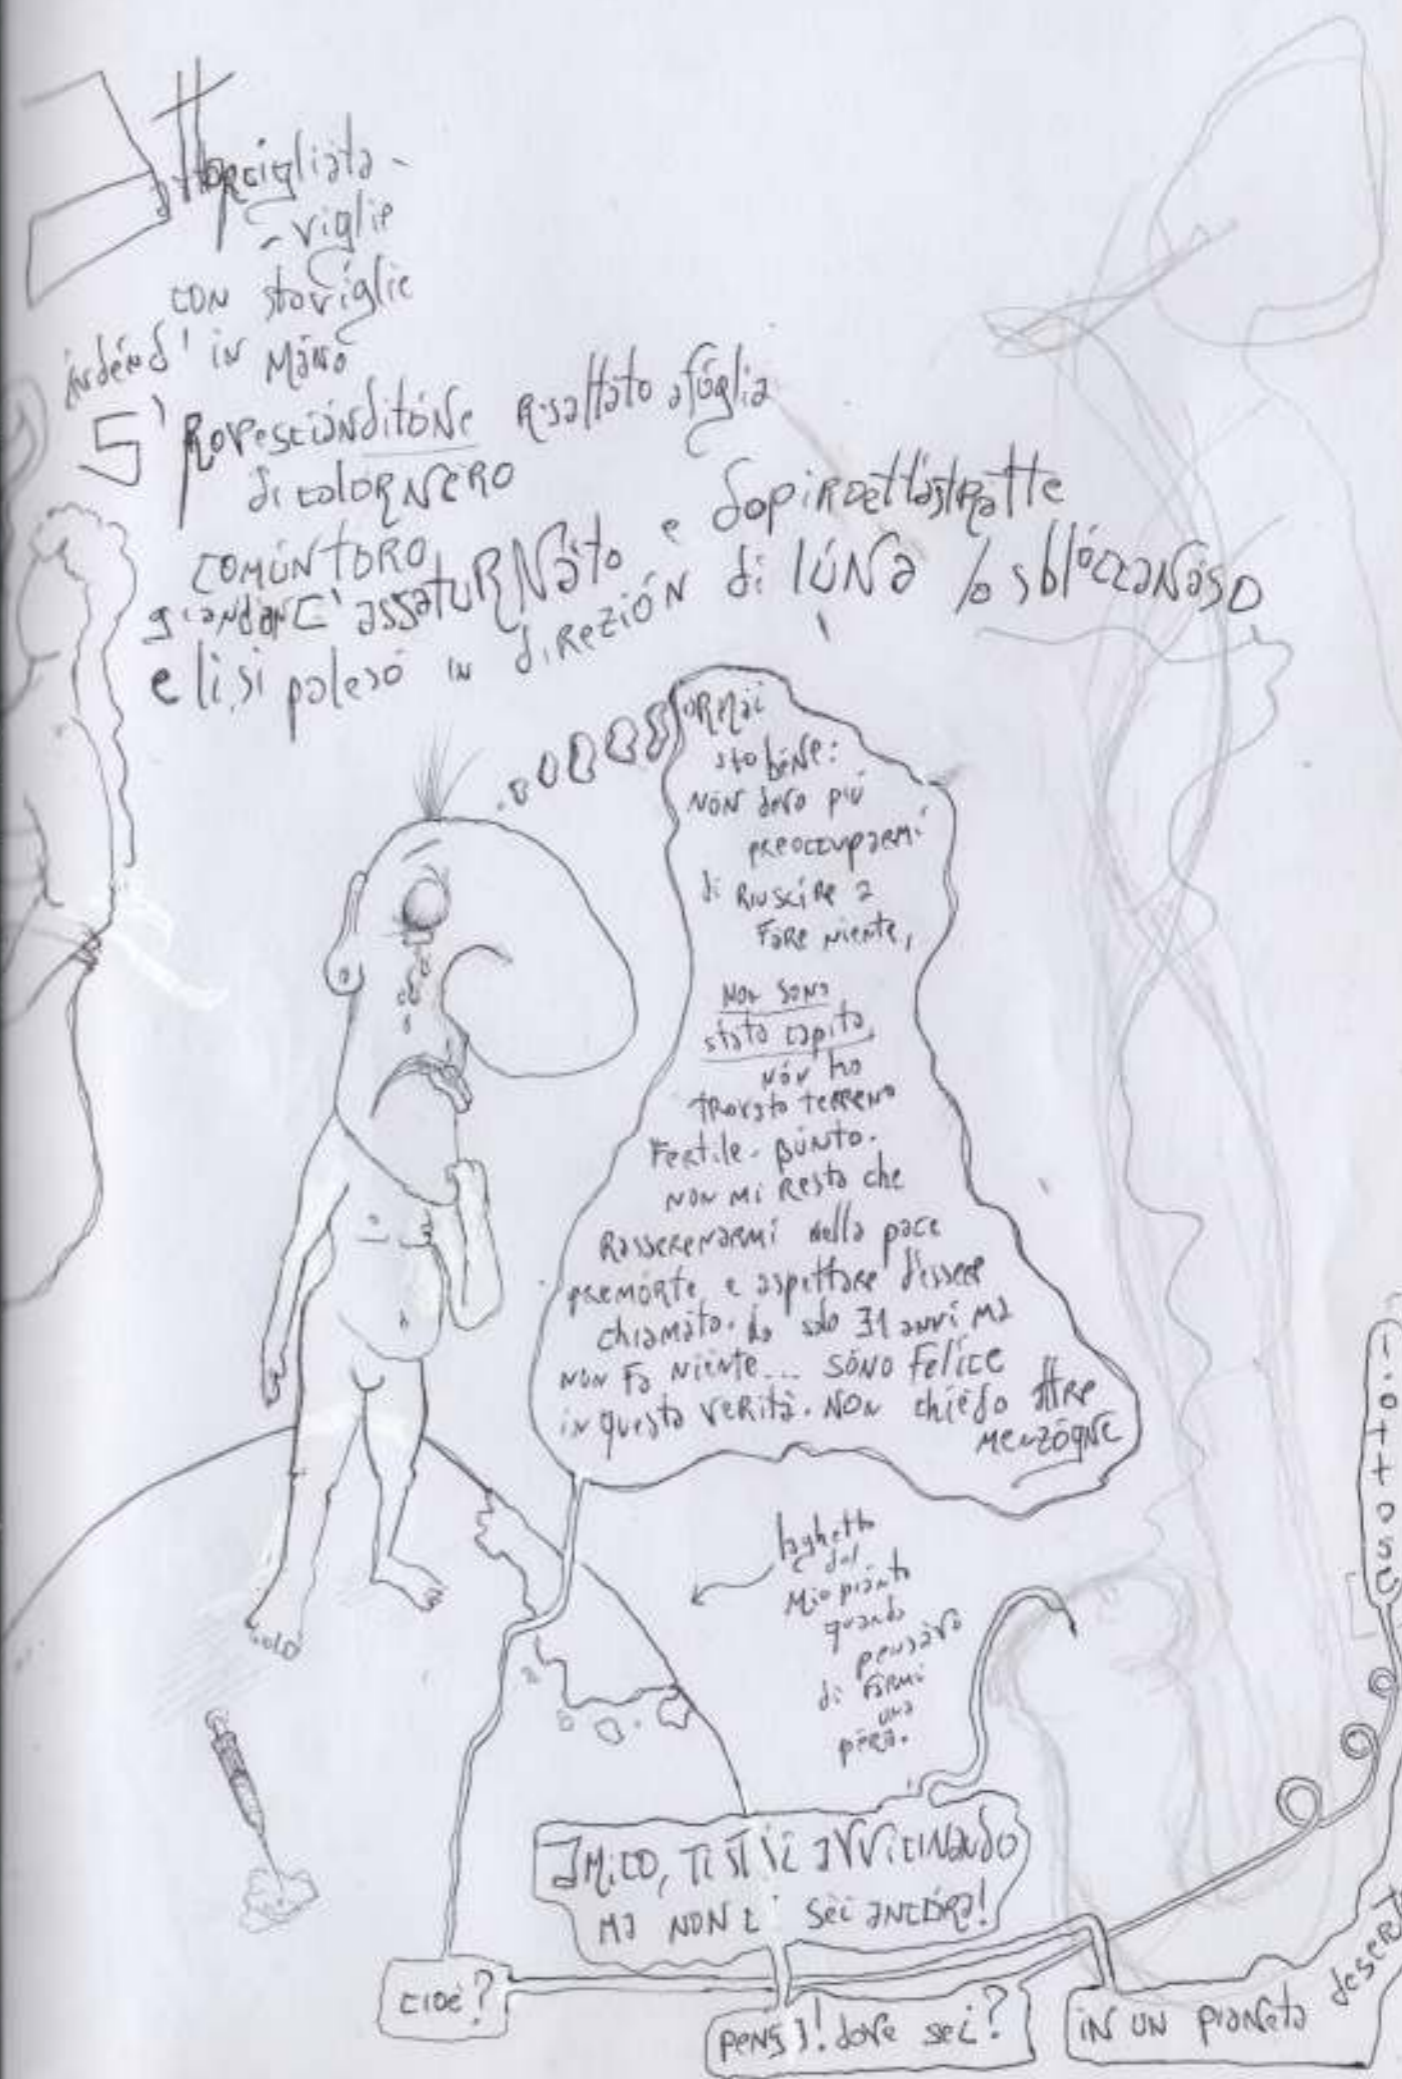 attorcigliata -
- viglie
con stoviglie
in mano
S' rovesciànditóne risaltato afóglia
di colorNERO
comúntoro
giandanc' assatURNàto e dopiroettastratte
e li si palesó in direzión di lúNa lo sbloccanàso
ormai
sto béne:
nón devo piú
preoccuparmi
di riuscire a
fare niente,
Non sono
stato capito,
nón ho
trovato terreno
fertile. púnto.
non mi resta che
rasserenarmi nella pace
premórte e aspettare d'essere
chiamato. ho solo 31 anni ma
non fa niente... sóno felice
in questa verità. NON chiédo altre
menzógne
laghetto
del
mio piànto
quando
pensàvo
di farmi
una
péra.
solo
AMICO, TI STAI AVVICINANDO
MA NON CI sei ANCÓRA!
cioè?
PENSA! dove sei?
IN UN PIANETA deserto